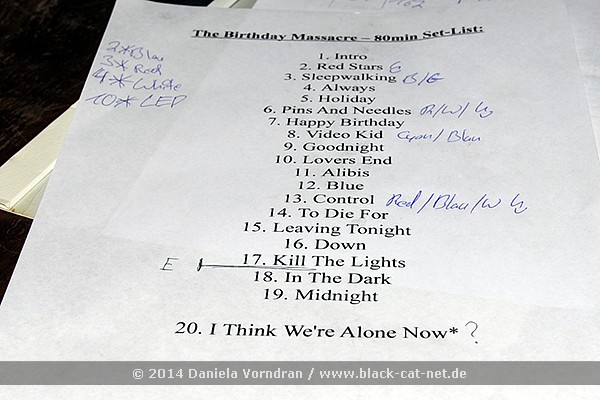 The Birthday Massacre – 80min Set-List:
2*Blau
3* Red
4* White
10* LED
1. Intro
2. Red Stars G
3. Sleepwalking B/G
4. Always
5. Holiday
6. Pins And Needles R/W/
7. Happy Birthday
8. Video Kid Cyan/Blau
9. Goodnight
10. Lovers End
11. Alibis
12. Blue
13. Control Red/Blau/W
14. To Die For
15. Leaving Tonight
16. Down
E 17. Kill The Lights
18. In The Dark
19. Midnight
20. I Think We're Alone Now* ?
© 2014 Daniela Vorndran / www.black-cat-net.de